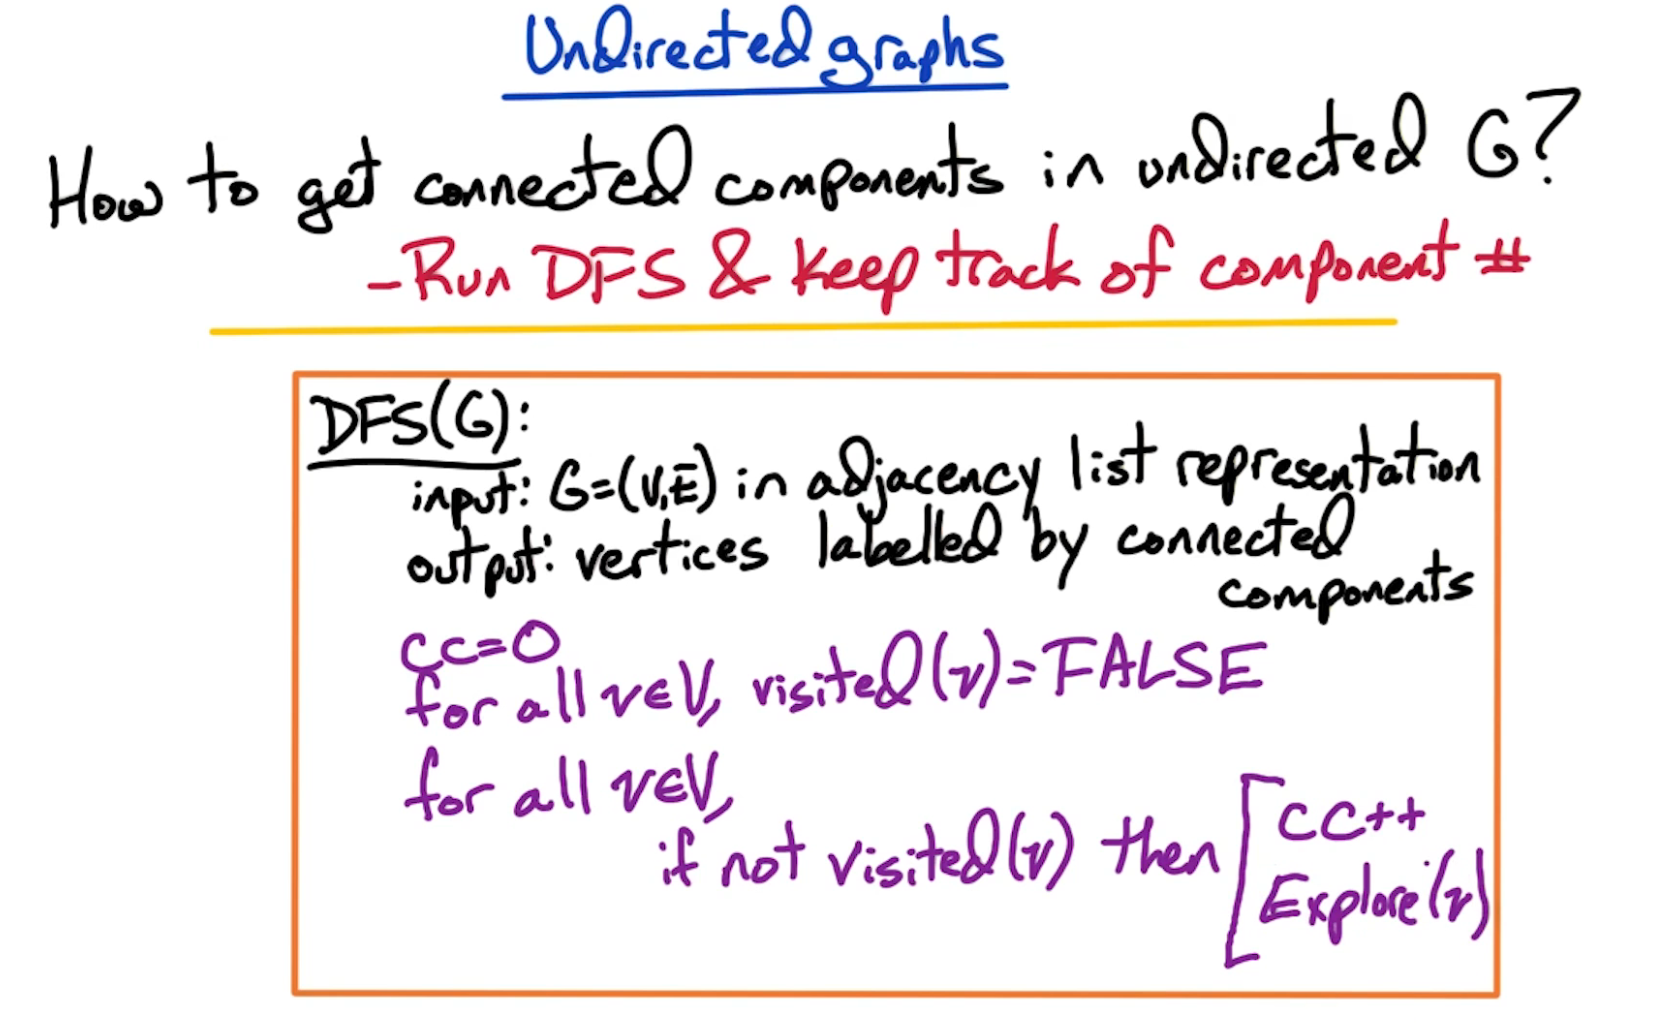 Undirected graphs
How to get connected components in undirected G?
-Run DFS & keep track of component #
DFS(G):
input: G=(V,E) in adjacency list representation
output: vertices labelled by connected
components
cc=0
for all v∈V, visited(v)=FALSE
for all v∈V,
if not visited(v) then
cc++
Explore(v)